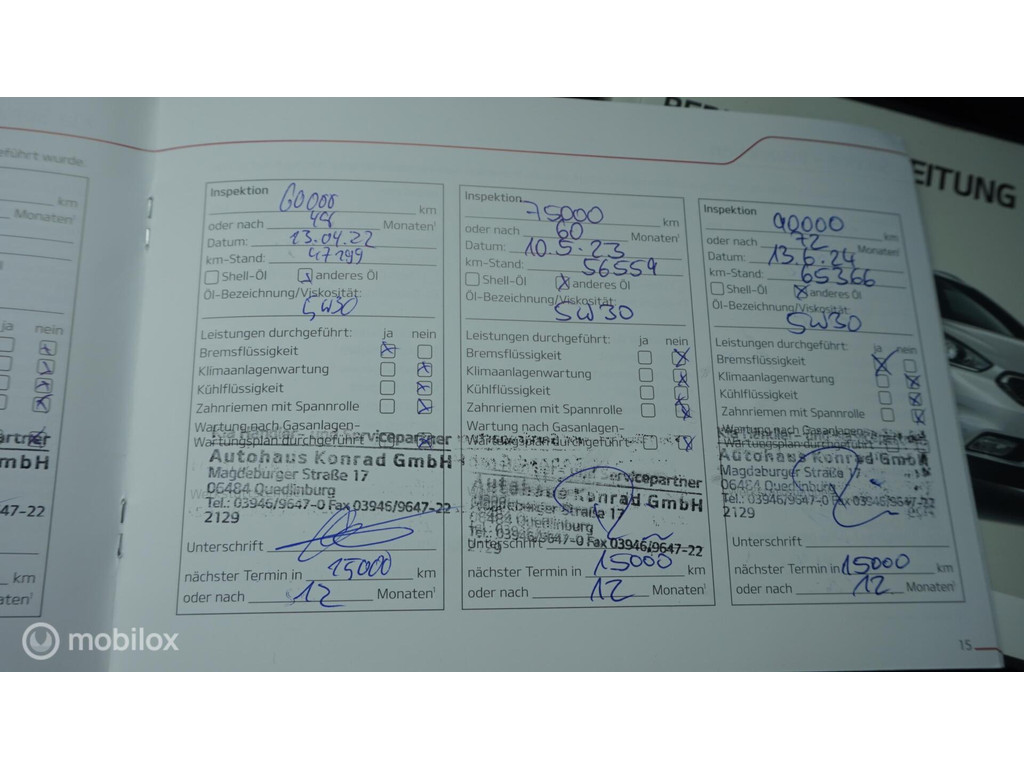 eführt wurde.
km
Monaten¹
ja nein
artner
mbH
47-22
km
aten¹
EITUNG
Inspektion 60000 km
oder nach 48 Monaten¹
Datum: 13.04.22
km-Stand: 47299
Shell-Öl anderes Öl
Öl-Bezeichnung/Viskosität:
5W30
Leistungen durchgeführt: ja nein
Bremsflüssigkeit
Klimaanlagenwartung
Kühlflüssigkeit
Zahnriemen mit Spannrolle
Wartung nach Gasanlagen-
Wartungsplan durchgeführt
servicepartner
Autohaus Konrad GmbH
Magdeburger Straße 17
06484 Quedlinburg
Tel.: 03946/9647-0 Fax 03946/9647-22
2129
Unterschrift
nächster Termin in 15000 km
oder nach 12 Monaten¹
Inspektion 75000 km
oder nach 60 Monaten¹
Datum: 10.5.23
km-Stand: 56559
Shell-Öl anderes Öl
Öl-Bezeichnung/Viskosität:
5W30
Leistungen durchgeführt: ja nein
Bremsflüssigkeit
Klimaanlagenwartung
Kühlflüssigkeit
Zahnriemen mit Spannrolle
Wartung nach Gasanlagen-
Wartungsplan durchgeführt
servicepartner
Autohaus Konrad GmbH
Magdeburger Straße 17
06484 Quedlinburg
Tel.: 03946/9647-0 Fax 03946/9647-22
2129
Unterschrift
nächster Termin in 15000 km
oder nach 12 Monaten¹
Inspektion 90000 km
oder nach 72 Monaten¹
Datum: 13.6.24
km-Stand: 65366
Shell-Öl anderes Öl
Öl-Bezeichnung/Viskosität:
5W30
Leistungen durchgeführt: ja nein
Bremsflüssigkeit
Klimaanlagenwartung
Kühlflüssigkeit
Zahnriemen mit Spannrolle
Wartung nach Gasanlagen-
Wartungsplan durchgeführt
Autohaus Konrad GmbH
Magdeburger Straße 17
06484 Quedlinburg
Tel.: 03946/9647-0 Fax 03946/9647-22
2129
Unterschrift
nächster Termin in 15000 km
oder nach 12 Monaten¹
15
mobilox